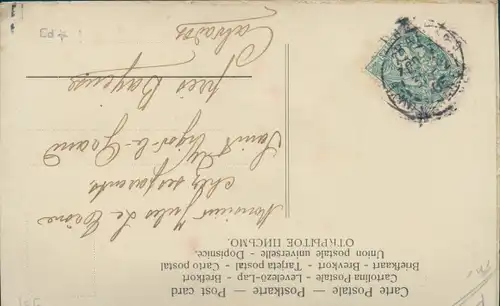 Carte Postale – Postkarte – Post card
Cartolina Postale – Levelező-Lap – Brefkort
Briefkaart – Brevkort – Tarjeta postal – Carto postal
Union postale universelle – Dopisnice.
ОТКРЫТОЕ ПИСЬМО.
Monsieur Jules Le
chez ses parents
Saint Vigor-le-Grand
près Bayeux
Calvados
Ed